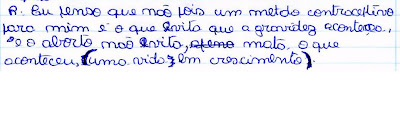 R: Eu penso que não pois um metdo contraceptivo
para mim é o que evita que a gravidez aconteça,
e o aborto não evita, apena mata o que
aconteceu, (uma vida em crescimento).